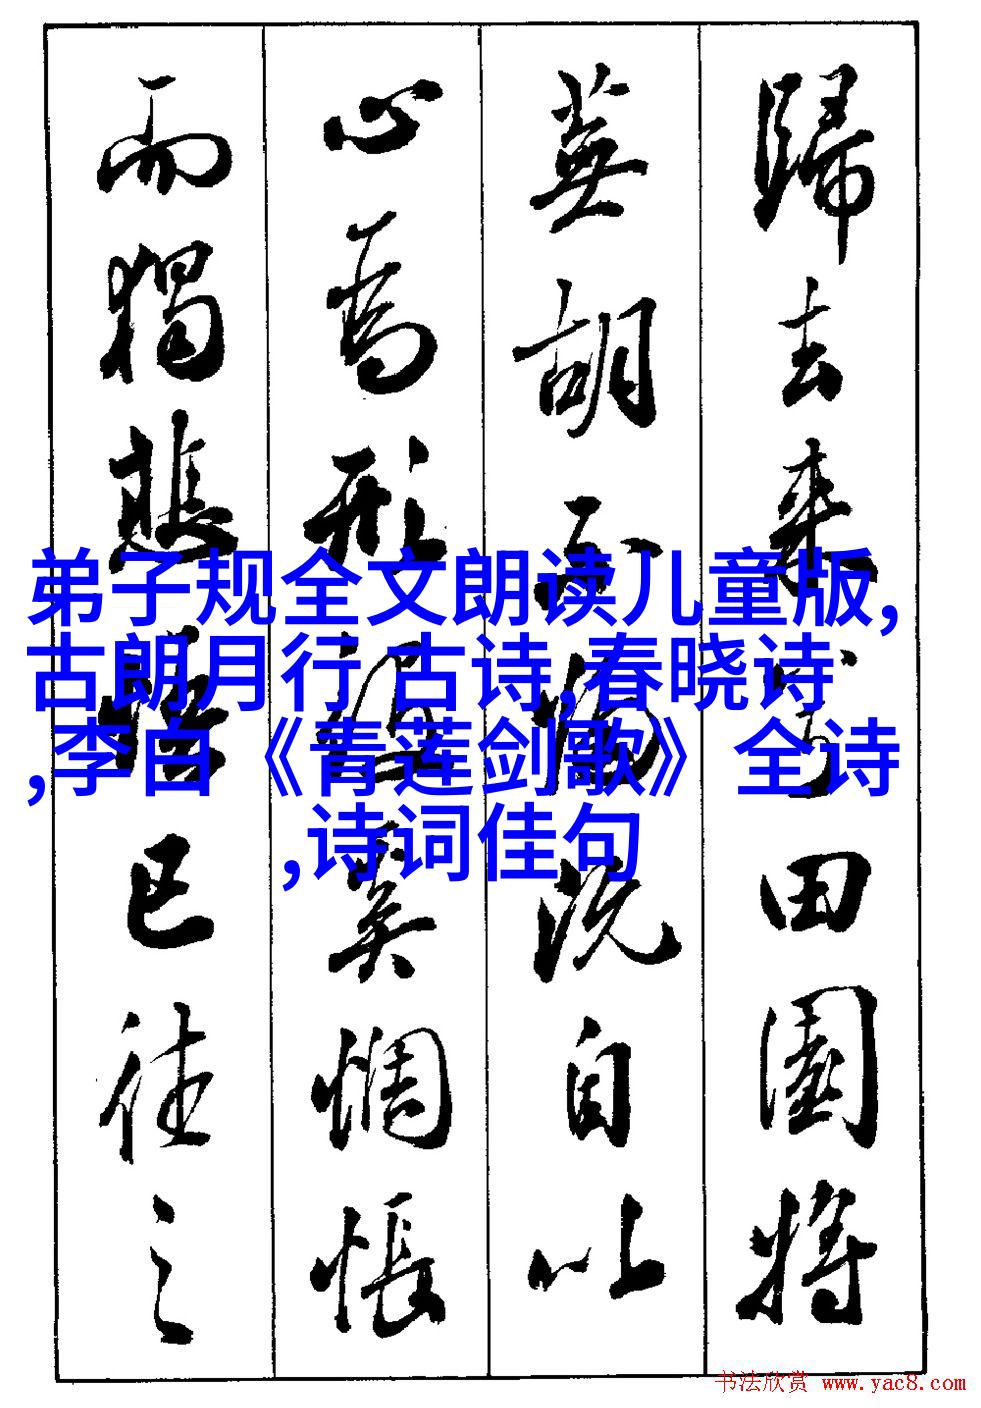 歸去來兮田園將
蕪胡不歸既自以
心為形役奚惆悵
而獨悲悟已往之
弟子规全文朗读儿童版,
古朗月行 古诗,春晓诗
,李白《青莲剑歌》全诗
,诗词佳句
书法欣赏 www.yac8.com